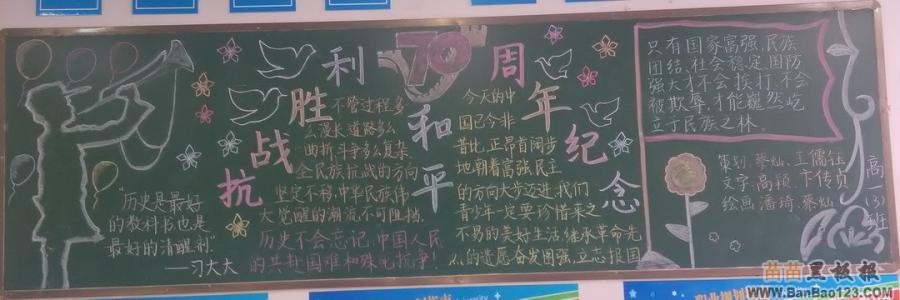 抗战胜利70周年纪念
和平
历史是最好
的教科书也是
最好的清醒剂
——习大大
不管过程多
么漫长道路多么
曲折,斗争多么复杂,
全民族抗战的方向
坚定不移,中华民族伟
大觉醒的潮流,不可阻挡。
历史不会忘记,中国人民
的共赴国难和殊死抗争!
今天的中
国已今非
昔比,正昂首阔步
地朝着富强民主
的方向大步迈进,我们
青少年一定要珍惜来之
不易的美好生活,继承革命先
的遗愿奋发图强,立志报国
只有国家富强,民族
团结,社会稳定,国防
强大才不会挨打,不会
被欺辱,才能巍然屹
立于民族之林。
策划:蔡灿、王儒钰
文字:高颖、卞传贞
绘画:潘琦、蔡灿
高一(3)班
苗苗黑板报
www.BanBao123.com